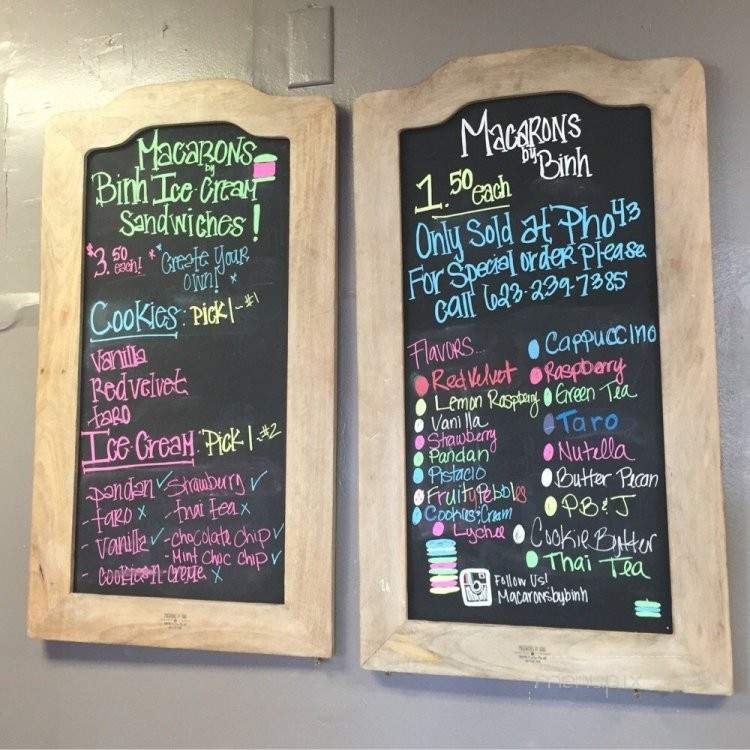 Macarons
by
Binh Ice Cream
Sandwiches!
$3.50 each!
*Create Your
Own! *
Cookies: Pick 1 - #1
Vanilla
Red velvet
taro
Ice Cream: Pick 1 - #2
- pandan ✓ - Strawberry ✓
- taro x - Thai Tea x
- Vanilla ✓ - chocolate chip ✓
- Mint Choc chip ✓
- cookies-n-creme x
Macarons
by
Binh
1.50 each
Only Sold at Pho43
For Special order Please
call 623-239-7385
Flavors...
Red Velvet
Lemon Raspberry
Vanilla
Strawberry
Pandan
Pistacio
Fruity Pebbles
Cookies & Cream
Lychee
Cappuccino
Raspberry
Green Tea
Taro
Nutella
Butter Pecan
PB & J
Cookie Butter
Thai Tea
Follow Us!
Macaronsbybinh
menupix